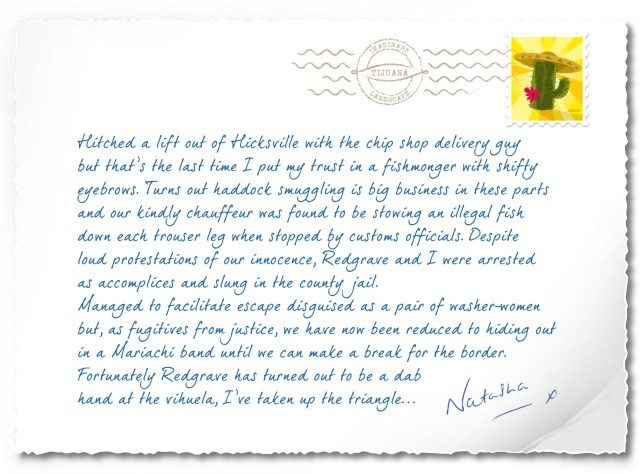 IMAGINARY
TIJUANA
LANDSCAPE
Hitched a lift out of Hicksville with the chip shop delivery guy
but that's the last time I put my trust in a fishmonger with shifty
eyebrows. Turns out haddock smuggling is big business in these parts
and our kindly chauffeur was found to be stowing an illegal fish
down each trouser leg when stopped by customs officials. Despite
loud protestations of our innocence, Redgrave and I were arrested
as accomplices and slung in the county jail.
Managed to facilitate escape disguised as a pair of washer-women
but, as fugitives from justice, we have now been reduced to hiding out
in a Mariachi band until we can make a break for the border.
Fortunately Redgrave has turned out to be a dab
hand at the vihuela, I've taken up the triangle...
Natasha x